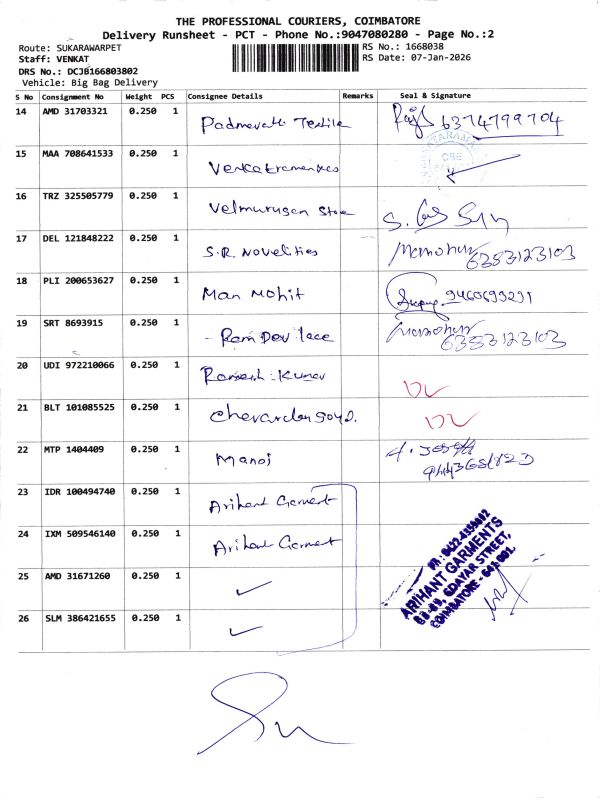 THE PROFESSIONAL COURIERS, COIMBATORE
Delivery Runsheet - PCT - Phone No.:9047080280 - Page No.:2
Route: SUKARAWARPET
RS No.: 1668038
Staff: VENKAT
RS Date: 07-Jan-2026
DRS No.: DCJB166803802
Vehicle: Big Bag Delivery
S No Consignment No Weight PCS Consignee Details Remarks Seal & Signature
14 AMD 31703321 0.250 1 Padmavati Textile 6374799704
15 MAA 708641533 0.250 1 CBE
16 TRZ 325505779 0.250 1 Velmurugan Store
17 DEL 121848222 0.250 1 S.R. Novelities Manohar 6353123103
18 PLI 200653627 0.250 1 Man Mohit 9460693291
19 SRT 8693915 0.250 1 Ram Dev lace Manohar 6353123103
20 UDI 972210066 0.250 1 Ramesh Kumar DL
21 BLT 101085525 0.250 1 DL
22 MTP 1404409 0.250 1 Manoj
23 IDR 100494740 0.250 1 Arihant Garment
24 IXM 509546140 0.250 1 Arihant Garment
25 AMD 31671260 0.250 1 ✓
26 SLM 386421655 0.250 1 ✓
ARIHANT GARMENTS
COIMBATORE - 641 001.